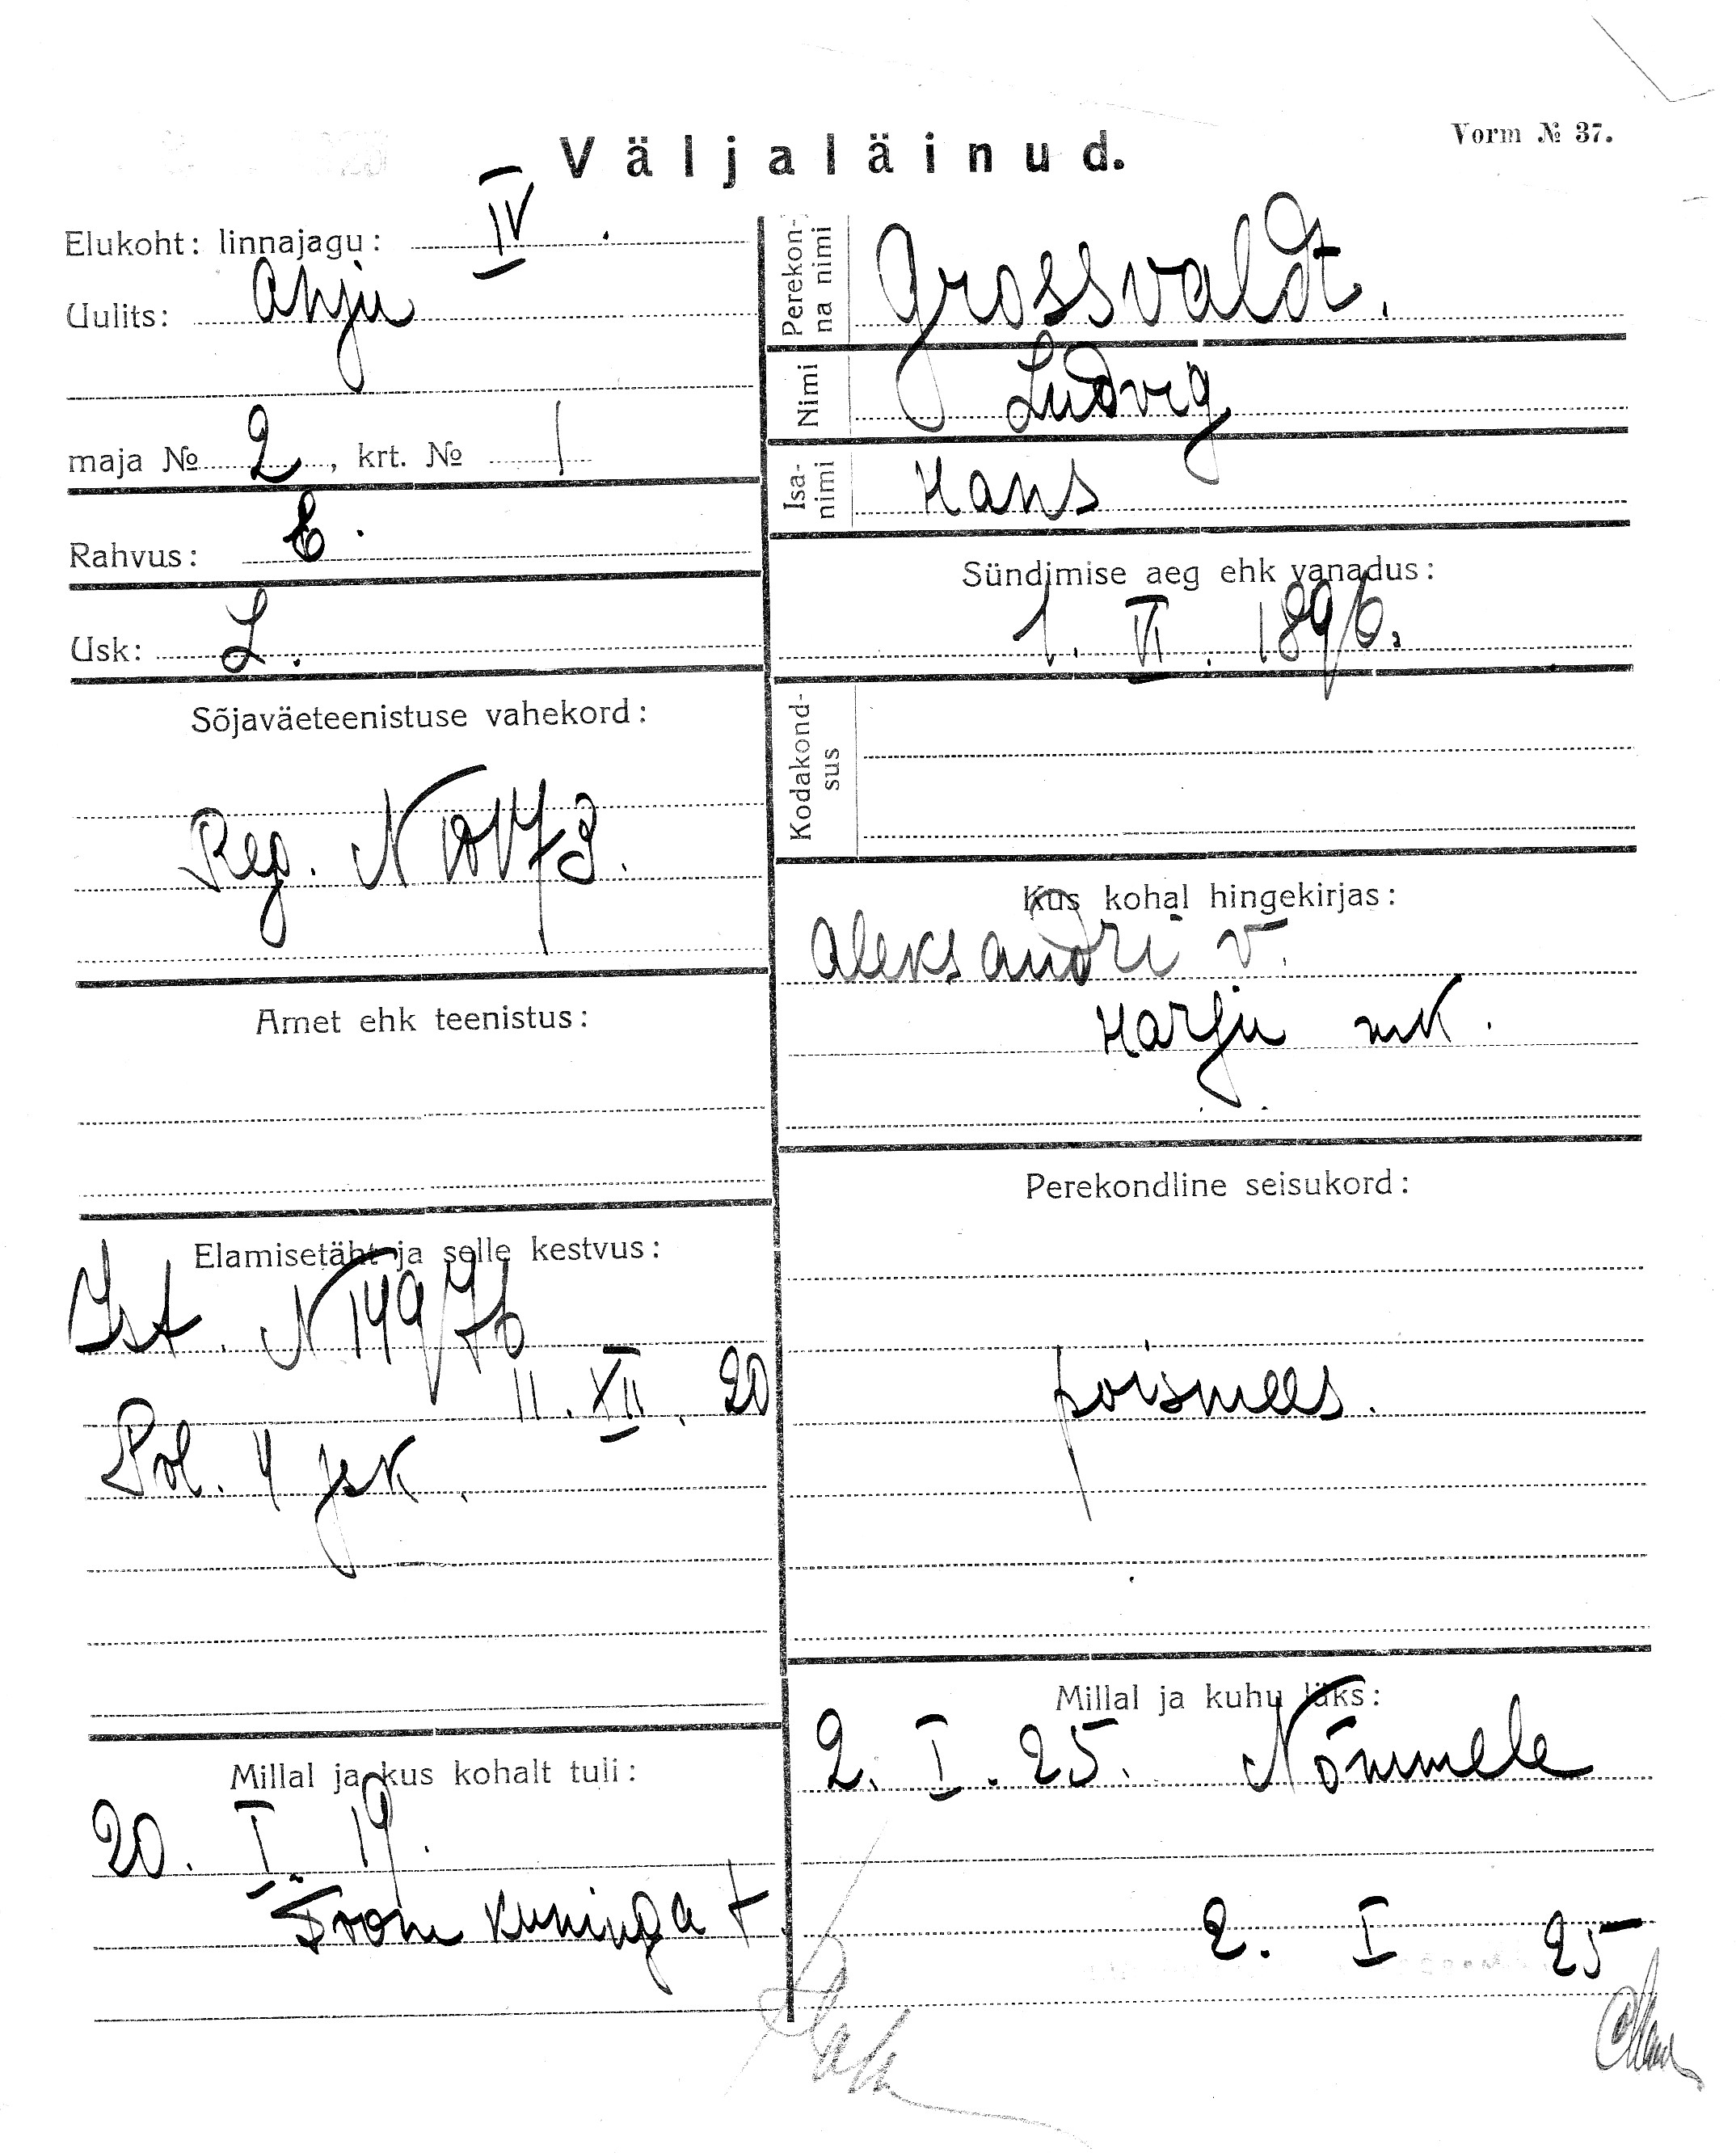 Vorm № 37.
Väljaläinud.
Elukoht: linnajagu: IV.
Uulits: Ahju
maja № 2, krt. № 1
Rahvus: E.
Usk: L.
Sõjaväeteenistuse vahekord:
Reg. N
Amet ehk teenistus:
Elamisetäht ja selle kestvus:
Ist. N 14976
11. XII. 20
Pol. 4 jsk.
Millal ja kus kohalt tuli:
20. I. 19.
kuninga t.
Perekonna nimi
Grossvaldt.
Nimi
Ludvig
Isanimi
Hans
Sündimise aeg ehk vanadus:
1. VI. 1896.
Kodakondsus
Kus kohal hingekirjas:
Aleksandri v.
Harju mk.
Perekondline seisukord:
poismees.
Millal ja kuhu läks:
2. I. 25. Nõmmele
2. I 25